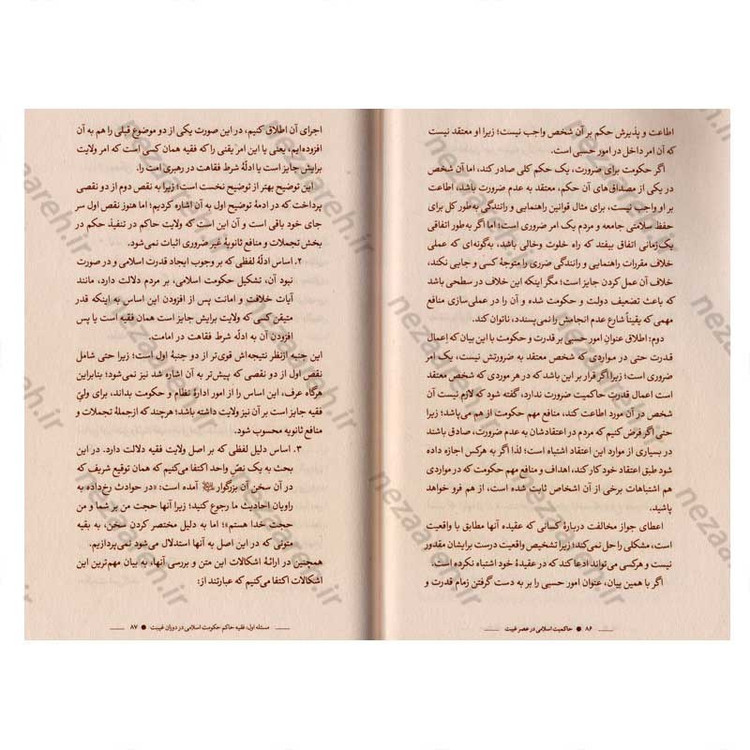 اطاعت و پذیرش حکم بر آن شخص واجب نیست؛ زیرا او معتقد نیست
که آن امر داخل در امور حسبی است.
اگر حکومت برای ضرورت، یک حکم کلی صادر کند، اما آن شخص
در یکی از مصداق‌های آن حکم، معتقد به عدم ضرورت باشد، اطاعت
بر او واجب نیست، برای مثال قوانین راهنمایی و رانندگی به‌طور کل برای
حفظ سلامتی جامعه و مردم یک امر ضروری است؛ اما اگر به‌طور اتفاقی
یک‌زمانی اتفاق بیفتد که راه خلوت وخالی باشد، به‌گونه‌ای که عملی
خلاف مقررات راهنمایی و رانندگی ضرری را متوجهٔ کسی و جایی نکند،
خلاف آن عمل کردن جایز است؛ مگر اینکه این خلاف در سطحی باشد
که باعث تضعیف دولت و حکومت شده و آن را در عملی‌سازی منافع
مهمی که یقیناً شارع عدم انجامش را نمی‌پسندد، ناتوان کند.
دوم: اطلاق عنوان امور حسبی بر قدرت و حکومت با این بیان که اِعمال
قدرت حتی در مواردی که شخص معتقد به ضرورتش نیست، یک امر
ضروری است؛ زیرا اگر قرار بر این باشد که در هر موردی که شخص معتقد
است اعمال قدرت حاکمیت ضرورت ندارد، گفته شود که لازم نیست آن
شخص در آن مورد اطاعت کند، منافع مهم حکومت از هم می‌پاشد؛ زیرا
حتی اگر فرض کنیم که مردم در اعتقادشان به عدم ضرورت، صادق باشند
در بسیاری از موارد این اعتقاد اشتباه است؛ لذا اگر به هرکس اجازه داده
شود طبق اعتقاد خود کار کند، اهداف و منافع مهم حکومت که در مواردی
هم اشتباهات برخی از آن اشخاص ثابت شده است، از هم فرو خواهد
پاشید.
اعطای جواز مخالفت دربارهٔ کسانی که عقیده آنها مطابق با واقعیت
است، مشکلی را حل نمی‌کند؛ زیرا تشخیص واقعیت درست برایشان مقدور
نیست و هرکسی می‌تواند ادعا کند که در عقیدهٔ خود اشتباه نکرده است.
اگر با همین بیان، عنوان امور حسبی را بر به دست گرفتن زمام قدرت و
۸۶ ● حاکمیت اسلامی در عصر غیبت
اجرای آن اطلاق کنیم، در این صورت یکی از دو موضوع قبلی را هم به آن
افزوده‌ایم، یعنی یا این امر یقینی را که فقیه همان کسی است که امر ولایت
برایش جایز است یا ادلّهٔ شرط فقاهت در رهبری امت را.
این توضیح بهتر از توضیح نخست است؛ زیرا به نقص دوم از دو نقصی
پرداخت که در ادمهٔ توضیح اول به آن اشاره کردیم؛ اما هنوز نقص اول سر
جای خود باقی است و آن این است که ولایت حاکم در تنفیذ حکم در
بخش تجملات و منافع ثانویهٔ غیر ضروری اثبات نمی‌شود.
۲. اساس ادلّهٔ لفظی که بر وجوب ایجاد قدرت اسلامی و در صورت
نبود آن، تشکیل حکومت اسلامی، بر مردم دلالت دارد، مانند
آیات خلافت و امانت پس از افزودن این اساس به اینکه قدر
متیقن کسی که ولایت برایش جایز است همان فقیه است یا پس
افزودن آن به ادلّهٔ شرط فقاهت در امامت.
این جنبه ازنظر نتیجه‌اش قوی‌تر از دو جنبهٔ اول است؛ زیرا حتی شامل
نقص اول از دو نقصی که پیش‌تر به آن اشاره شد نیز نمی‌شود؛ بنابراین
هرگاه عرف، این اساس را از امور ادارهٔ نظام و حکومت بداند، برای ولیّ
فقیه جایز است بر آن نیز ولایت داشته باشد؛ هرچند که ازجملهٔ تجملات و
منافع ثانویه محسوب شود.
۳. اساس دلیل لفظی که بر اصل ولایت فقیه دلالت دارد. در این
بحث به یک نصّ واحد اکتفا می‌کنیم که همان توقیع شریف که
در آن سخن آن بزرگوار آمده است: «در حوادث رخ‌داده به
راویان احادیث ما رجوع کنید؛ زیرا آنها حجت من بر شما و من
حجت خدا هستم»؛ اما به دلیل مختصر کردن سخن، به بقیه
متونی که در این اصل به آنها استدلال می‌شود نمی‌پردازیم.
همچنین در ارائهٔ اشکالات این متن و بررسی آنها، به بیان مهم‌ترین این
اشکالات اکتفا می‌کنیم که عبارتند از:
مسئله اول: فقیه حاکم حکومت اسلامی در دوران غیبت ● ۸۷
nezaareh.ir